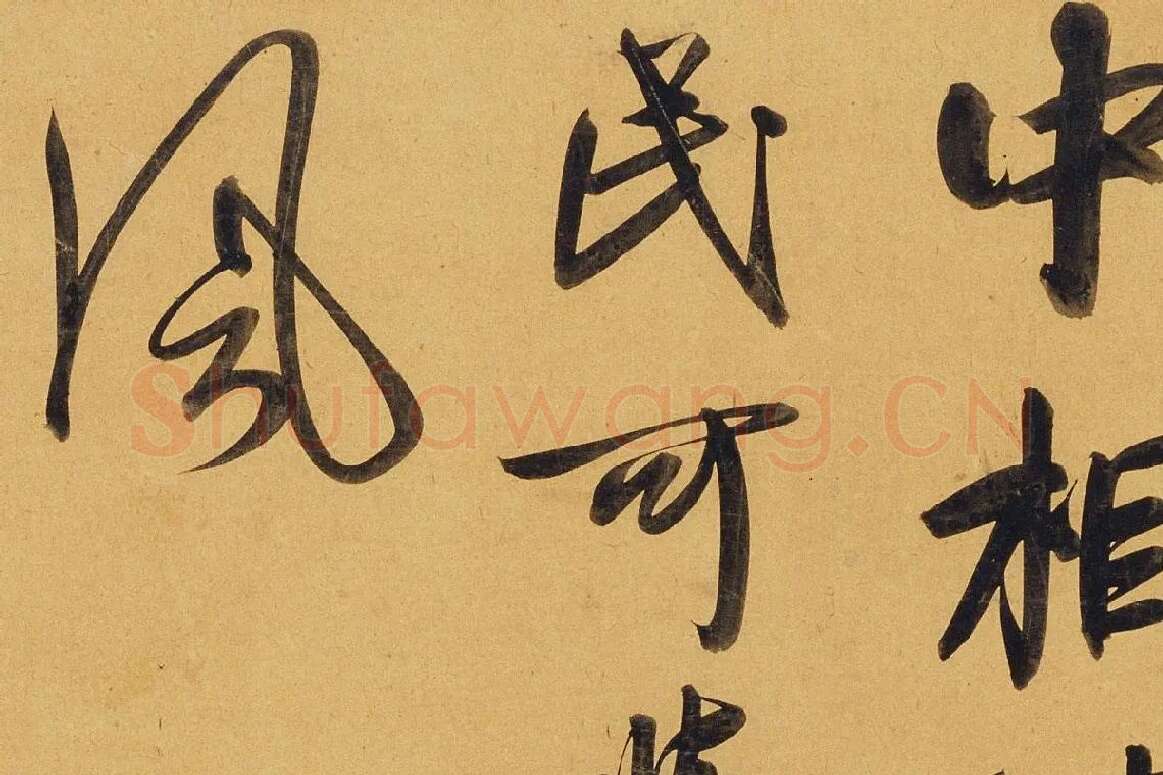 中相
民可
風
Shufawang.CN